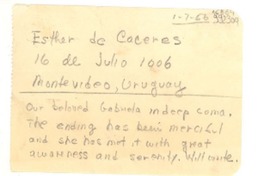 1-7-56
Esther de Caceres
16 de Julio 1006
Montevideo, Uruguay
Our beloved Gabriela in deep coma.
The ending has been merciful
and she has met it with great
awareness and serenity. Will write.